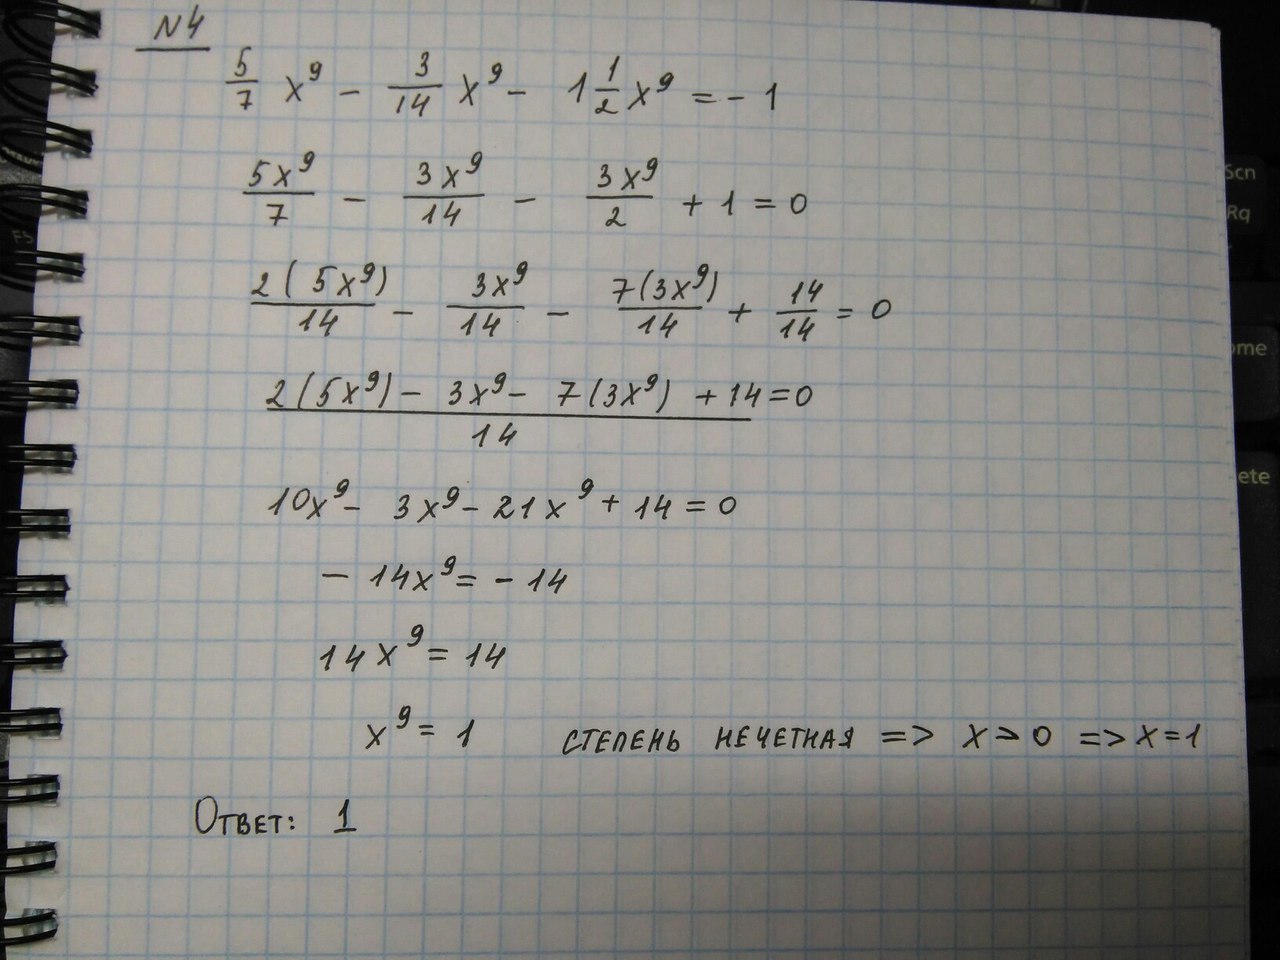 N4
5/7 x⁹ - 3/14 x⁹ - 1 1/2 x⁹ = - 1
5x⁹/7 - 3x⁹/14 - 3x⁹/2 + 1 = 0
2(5x⁹)/14 - 3x⁹/14 - 7(3x⁹)/14 + 14/14 = 0
2(5x⁹) - 3x⁹ - 7(3x⁹) + 14 = 0
14
10x⁹ - 3x⁹ - 21x⁹ + 14 = 0
- 14x⁹ = - 14
14x⁹ = 14
x⁹ = 1 СТЕПЕНЬ НЕЧЕТНАЯ => X > 0 => X = 1
ОТВЕТ: 1
Scn
Rq
ome
ete
F5